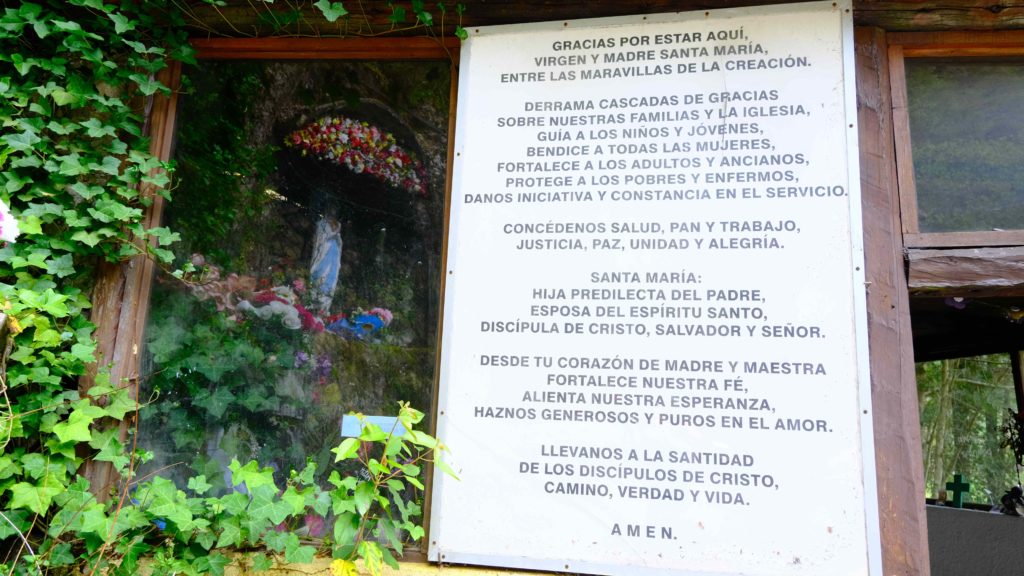 GRACIAS POR ESTAR AQUÍ,
VIRGEN Y MADRE SANTA MARÍA,
ENTRE LAS MARAVILLAS DE LA CREACIÓN.
DERRAMA CASCADAS DE GRACIAS
SOBRE NUESTRAS FAMILIAS Y LA IGLESIA,
GUÍA A LOS NIÑOS Y JÓVENES,
BENDICE A TODAS LAS MUJERES,
FORTALECE A LOS ADULTOS Y ANCIANOS,
PROTEGE A LOS POBRES Y ENFERMOS,
DANOS INICIATIVA Y CONSTANCIA EN EL SERVICIO.
CONCÉDENOS SALUD, PAN Y TRABAJO,
JUSTICIA, PAZ, UNIDAD Y ALEGRÍA.
SANTA MARÍA:
HIJA PREDILECTA DEL PADRE,
ESPOSA DEL ESPÍRITU SANTO,
DISCÍPULA DE CRISTO, SALVADOR Y SEÑOR.
DESDE TU CORAZÓN DE MADRE Y MAESTRA
FORTALECE NUESTRA FÉ,
ALIENTA NUESTRA ESPERANZA,
HAZNOS GENEROSOS Y PUROS EN EL AMOR.
LLEVANOS A LA SANTIDAD
DE LOS DISCÍPULOS DE CRISTO,
CAMINO, VERDAD Y VIDA.
A M E N.